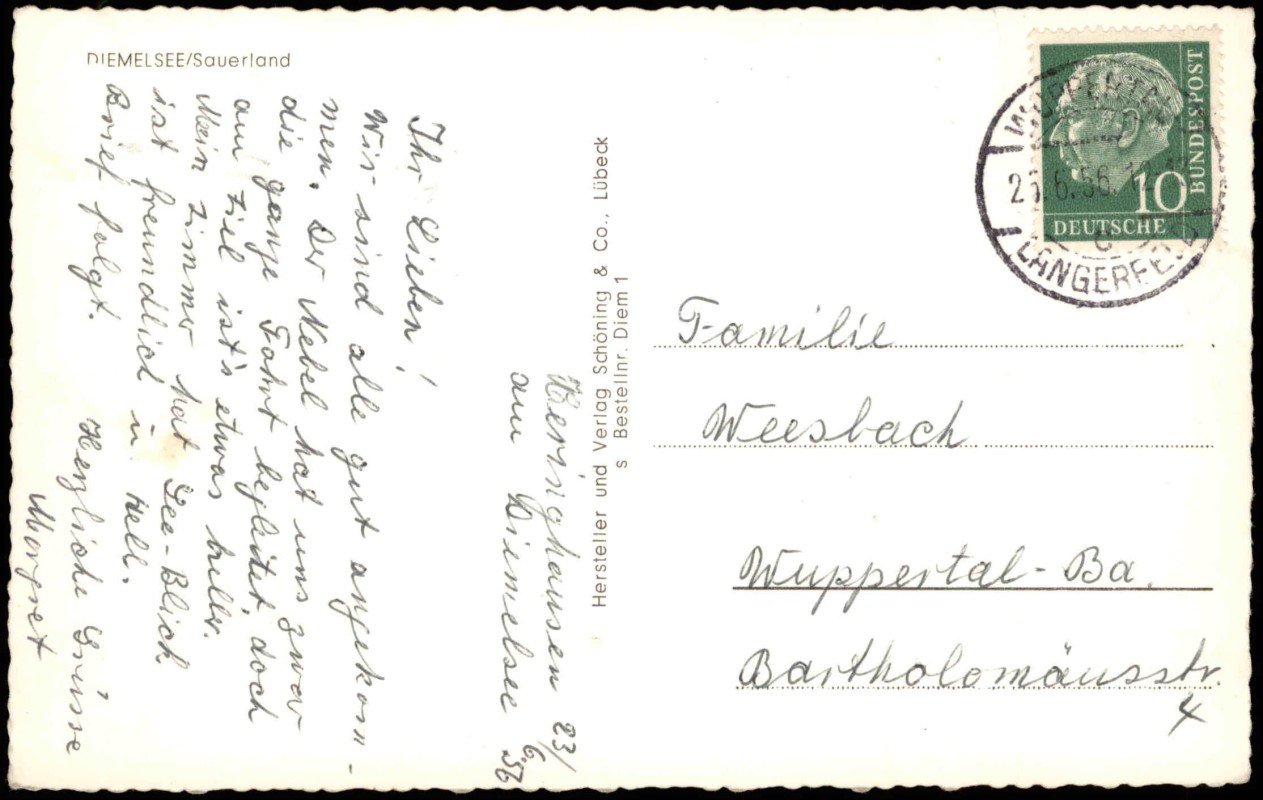 DIEMELSEE/Sauerland
Heringhausen 23/
am Diemelsee 6.56
Ihr Lieben!
Wir sind alle gut angekom-
men. Der Nebel hat uns zwar
die ganze Fahrt begleitet, doch
am Ziel ist's etwas heller.
Mein Zimmer hat See-Blick
ist freundlich u. hell.
Brief folgt.
Herzliche Grüsse
Margret
Hersteller und Verlag Schöning & Co., Lübeck
s Bestellnr. Diem 1
WUPPERTAL
6.56.
c
LANGERFELD
10
DEUTSCHE
BUNDESPOST
Familie
Weesbach
Wuppertal-Ba.
Bartholomäusstr.
4